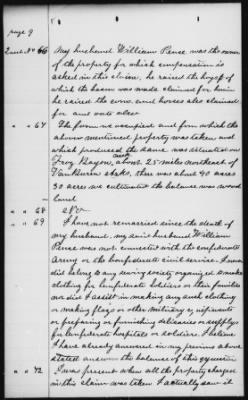 page 9
Ques. No 66 My husband William Pence was the owner
of the property for which compensation is
asked in this claim, he raised the hogs of
which the bacon was made claimed for him
he raised the corn and horses also claimed
for and oats also
" " 67 The farm we occupied and from which the
above mentioned property was taken, and
which produced the same was situated on
Frog Bayou, about 25 miles northeast of
Van Buren Arks, there was about 40 acres
30 acres we cultivated the balance was wood
land
" " 68
" " 69 I have not remarried since the death of
my husband, my said husband William
Pence was not connected with the confederate
Army or the confederate civil service. I never
did belong to any sewing society organized to make
clothing for confederate soldiers or their families
nor did I assist in making any such clothing
or making flags or other military equipments
or preparing or furnishing delicacies or supplys
for confederate hospitals or soldiers, I believe
I have already answered in my previous above
stated answers the balance of this question
" " 72 I was present when all the property charged
in this claim was taken I actually saw it